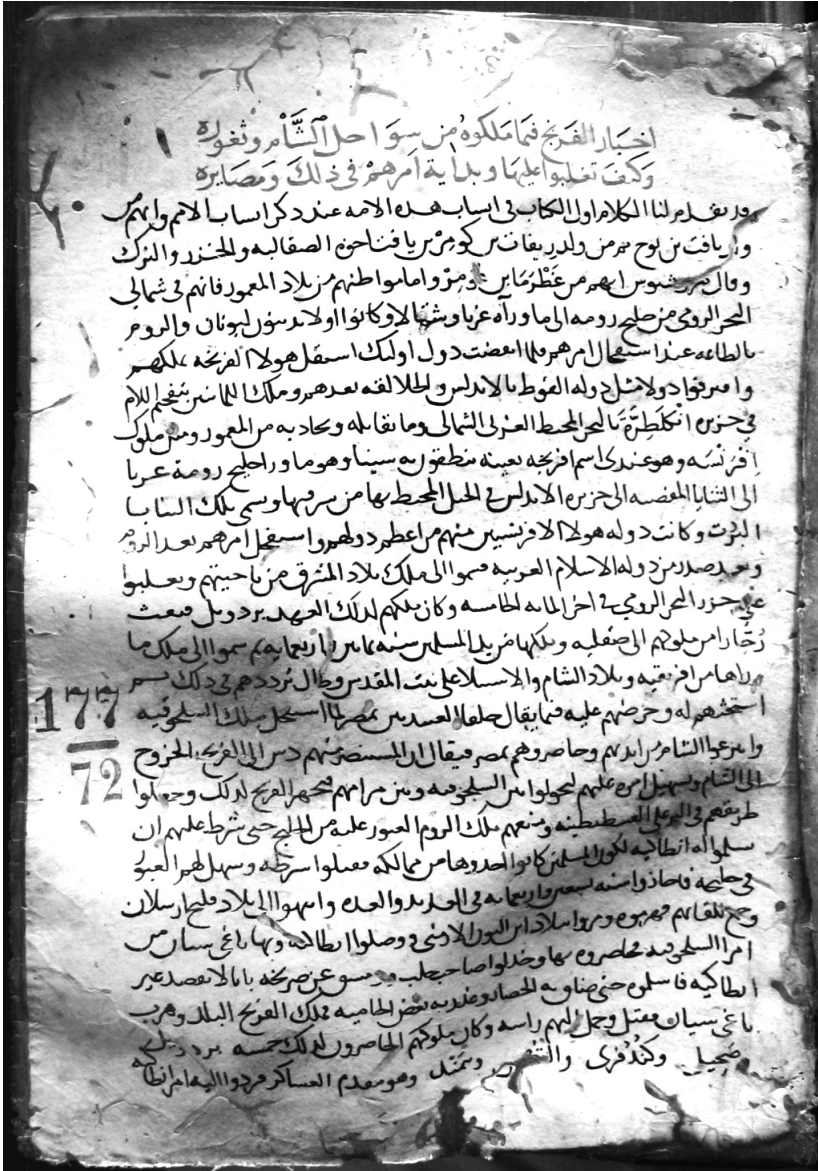 اخبار الفرنج فيما ملكوه من سواحل الشام وثغوره
وكيف تغلبوا عليها وبداية امرهم في ذلك ومصايره
قد تقدم لنا الكلام اول الكتاب في انساب هذه الامه عند ذكر انساب الامم وانهم من
ولد يافث بن نوح ثم من ولد ريفاث بن كومر بن يافث اخوه الصقالبه والخزر والترك
وقال هروشيوش انهم من غطرما بن كومر واما مواطنهم من بلاد المعمور فانهم في شمالي
البحر الرومي من خليج رومه الى ما وراه غربا وشمالا وكانوا اولا يدينون ليونان والروم
بالطاعه عند استفحال امرهم فلما انقضت دول اولئك استقل هولا الفرنجه بملكهم
وافترقوا دولا مثل دوله القوط بالاندلس والجلالقه بعدهم وملك اللمانيين بتفخيم اللام
في جزيره انكلطره بالبحر المحيط الغربي الشمالي وما يقابله ويحاذيه من المعمور ومثل ملوك
افرنسه وهو عندي اسم افرنجه بعينه ينطقون به سينا وهو ما ورا خليج رومة غربا
الى الثنايا المفضيه الى جزيره الاندلس في الجبل المحيط بها من شرقها وتسمى تلك الثنايا
البُرُت وكانت دوله هولا الافرنسيين منهم من اعظم دولهم واستفحل امرهم بعد الروم
وبعد صدر من دوله الاسلام العربيه فسموا الى ملك بلاد المشرق من ناحيتهم وتغلبوا
على جزر البحر الرومي في اخر المايه الخامسه وكان ملكهم لذلك العهد بردويل فبعث
رُجّار من ملوكهم الى صقليه وملكها من يد المسلمين سنه ثمانين واربعمايه ثم سموا الى ملك ما
وراها من افريقيه وبلاد الشام والاستيلا على بيت المقدس وطال ترددهم في ذلك
استحثهم له وحرضهم عليه فيما يقال خلفا العبيديين بمصر لما استفحل ملك السلجوقيه
وانتزعوا الشام من ايديهم وحاصروهم بمصر فيقال ان المستنصر منهم دس الى الفرنج الخروج
الى الشام وتسهيل امره عليهم ليحولوا بين السلجوقيه وبين مرامهم فتجهز الفرنج لذلك وجعلوا
طريقهم في البر على القسطنطينه ومنعهم ملك الروم العبور عليه من الخليج حتى شرط عليهم ان
يسلموا له انطاكيه لكون المسلمين كانوا اخذوها من ممالكه فقبلوا شرطه وسهل لهم العبور
في خليجه فاجازوا سنه تسعين واربعمايه في العديد والعده وانتهوا الى بلاد قليج ارسلان
وجمع للقائهم فهزموه ومروا ببلاد ابن اليون الارمني ووصلوا انطاكيه وبها باغي سيان من
امرا السلجوقيه فحاصروه بها وخذلوا صاحب حلب ودمشق عن صريخه بانا لا نقصد غير
انطاكيه فاسلموه حتى ضاق به الحصار وغدر به بعض الحاميه فملك الفرنج البلد وهرب
باغي سيان فقتل وحمل اليهم راسه وكان ملوكهم الحاضرون لذلك خمسه بردويل
وصنجيل وكندفرى والقمص وبيمند وهو مقدم العساكر فردوا اليه امر انطاكيه
177
72